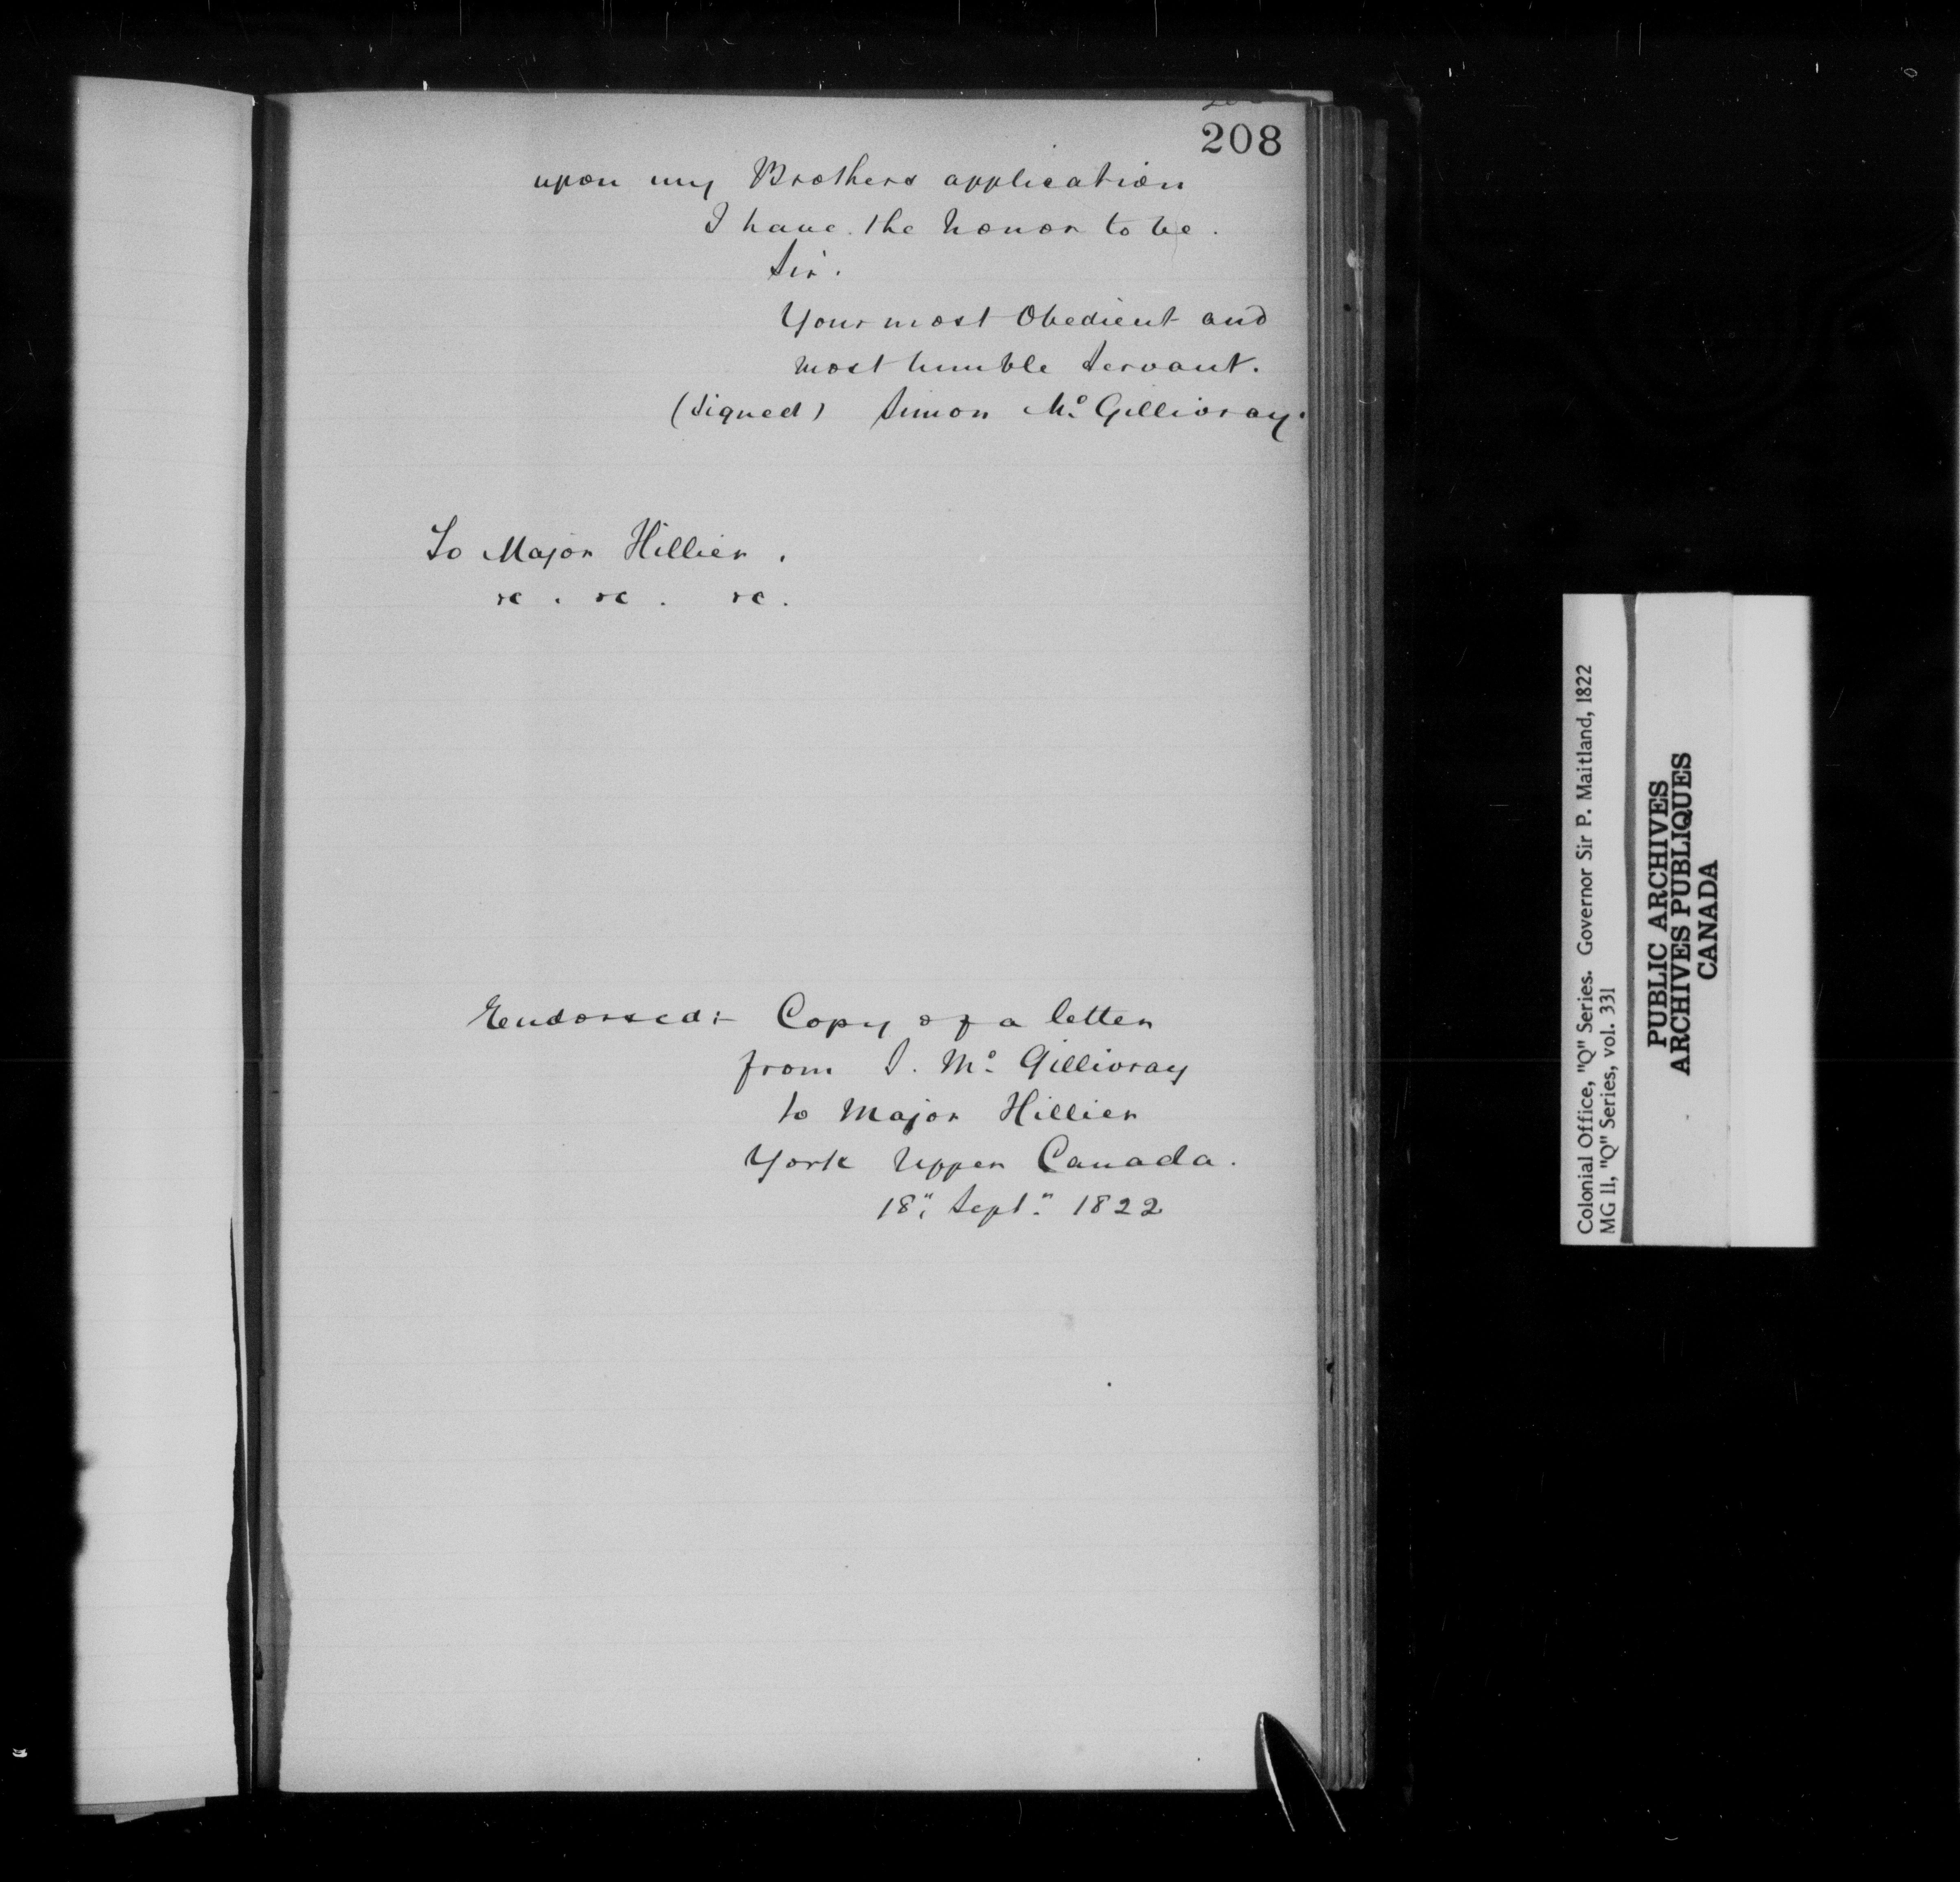 208
upon my Brothers application
I have. the honor to be.
Sir.
Your most Obedient and
most humble Servant.
(Signed) Simon Mc. Gillivray.
To Major Hillier.
&c. &c. &c.
Endorsed:- Copy of a letter
from S. Mc. Gillivray
to Major Hillier
York Upper Canada.
18" Sept." 1822
Colonial Office, "Q" Series. Governor Sir P. Maitland, 1822
MG 11, "Q" Series, vol. 331
PUBLIC ARCHIVES
ARCHIVES PUBLIQUES
CANADA